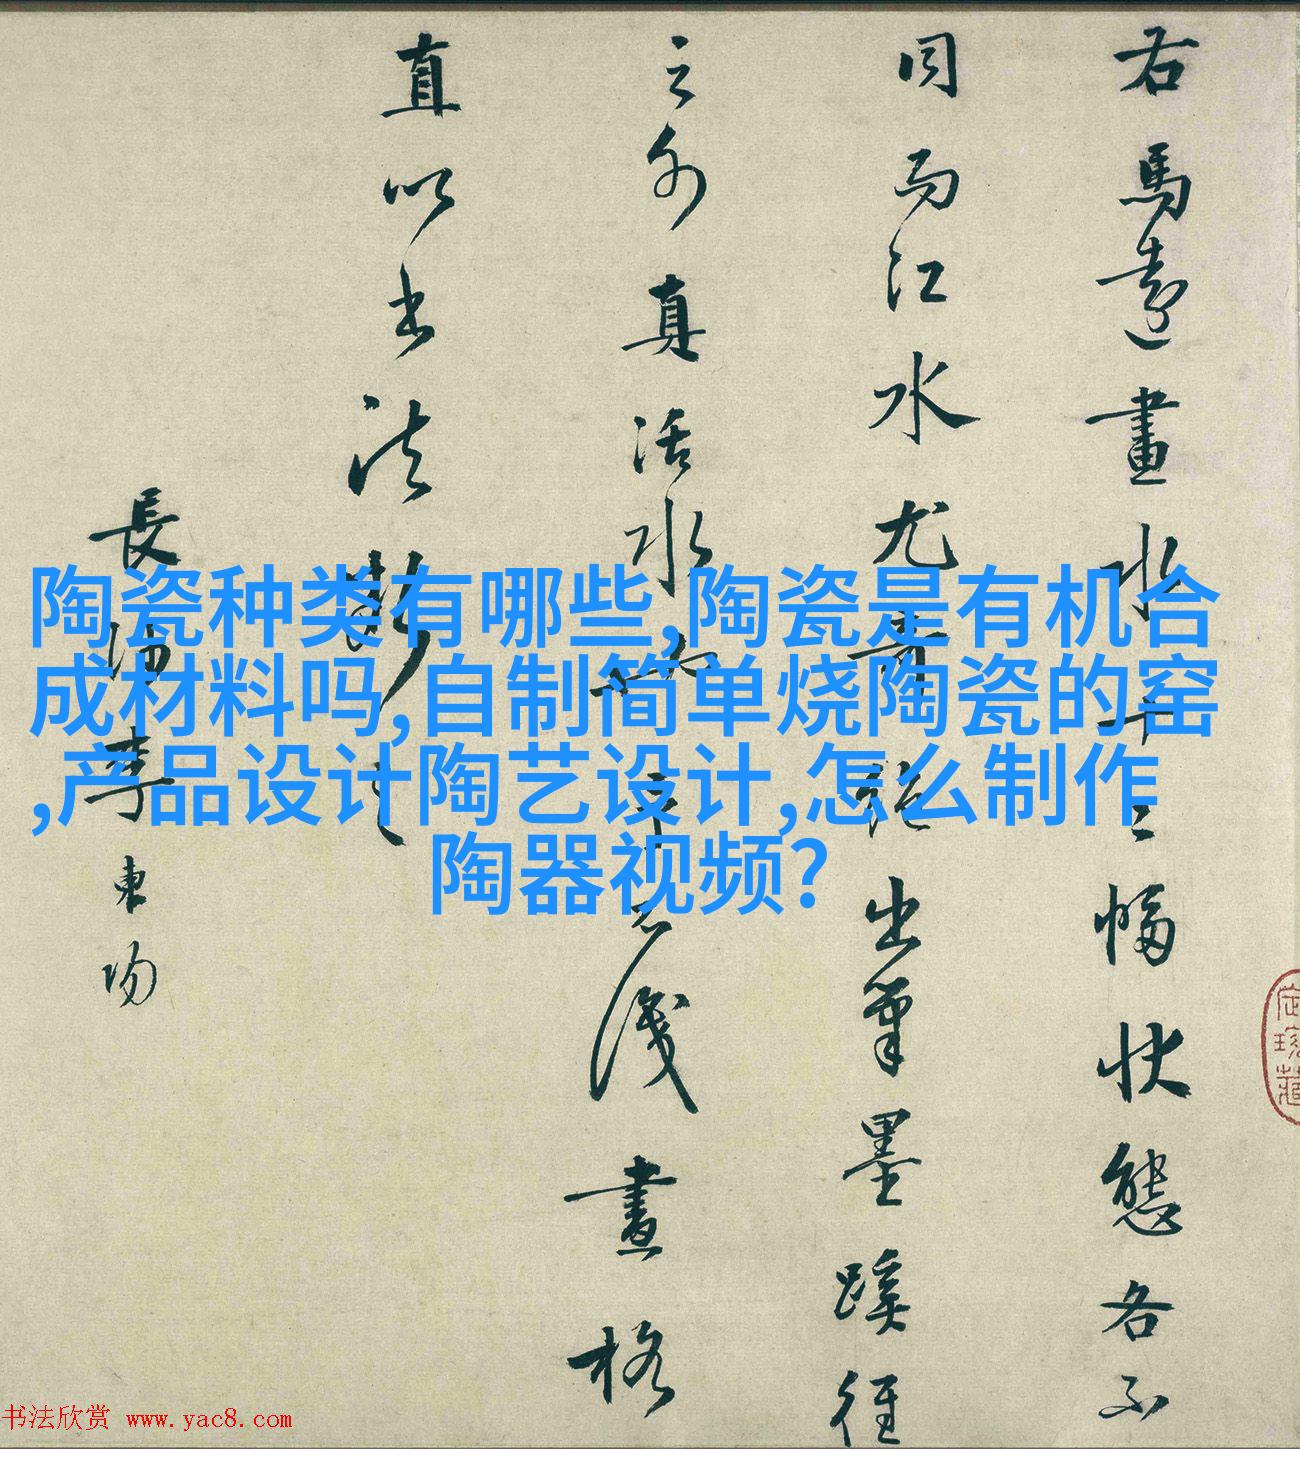 右馬遠畫水十二幅狀態各不
同而江水尤奇絕出筆墨蹊徑
之外真活水也
淺畫格
直以書法
長沙李東陽
陶瓷种类有哪些,陶瓷是有机合
成材料吗,自制简单烧陶瓷的窑
,产品设计陶艺设计,怎么制作
陶器视频?
书法欣赏 www.yac8.com